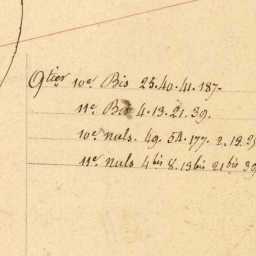 Qtier 10e Bis 25.40.41.187.
11e Bis 4.13.21.39.
10e nuls. 49. 54.177. 2.13.
11e nuls 4bis 8.13bis 21bis 39